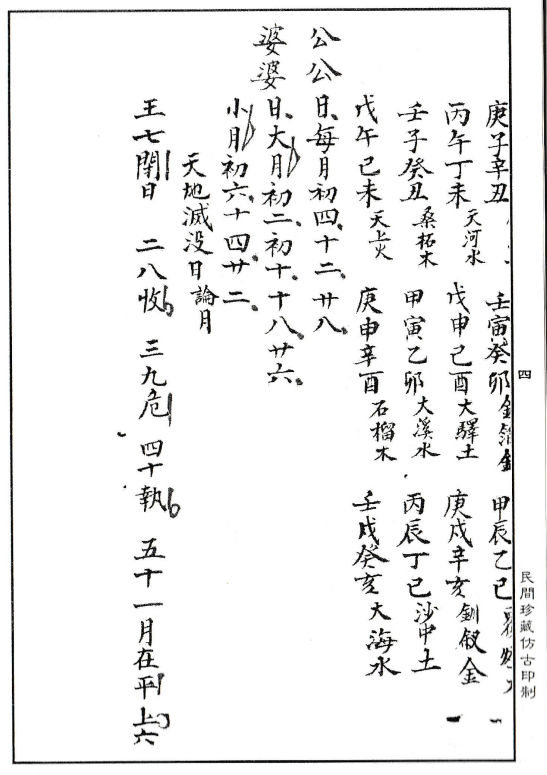 庚子辛丑 壬寅癸卯金箔金 甲辰乙巳
丙午丁未天河水 戊申己酉大驛土 庚戌辛亥釧釵金
壬子癸丑桑柘木 甲寅乙卯大溪水 丙辰丁巳沙中土
戊午己未天上火 庚申辛酉石榴木 壬戌癸亥大海水
公公日、每月初四、十二、廿八、
婆婆日、大月初二、初十、十八、廿六、
小月初六、十四、廿二、
天地滅没日論月
王七閉日 二八收 三九危 四十執 五十一月在平 上六
四
民間珍藏仿古印制